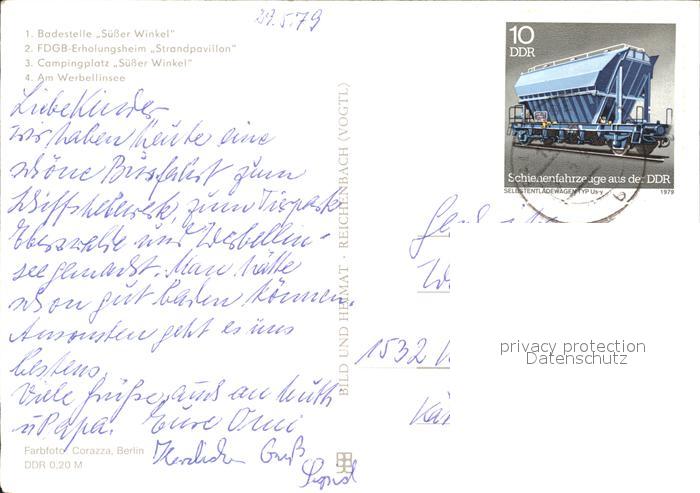 29.5.79
1. Badestelle „Süßer Winkel"
2. FDGB-Erholungsheim „Strandpavillon"
3. Campingplatz „Süßer Winkel"
4. Am Werbellinsee
Liebe Kinder
wir haben heute eine
schöne Busfahrt zum
Schiffshebewerk, zum Tierpark
Eberswalde und Werbellin-
see gemacht. Man hätte
schon gut baden können.
Ansonsten geht es uns
bestens.
Viele Grüße auch an Mutti
u Papa. Eure Omi
Herzlichen Gruß
Farbfoto: Corazza, Berlin
DDR 0,20 M
BILD UND HEIMAT · REICHENBACH (VOGTL)
10
DDR
Schienenfahrzeuge aus der DDR
SELBSTENTLADEWAGEN TYP Us-y 1979
1532
privacy protection
Datenschutz